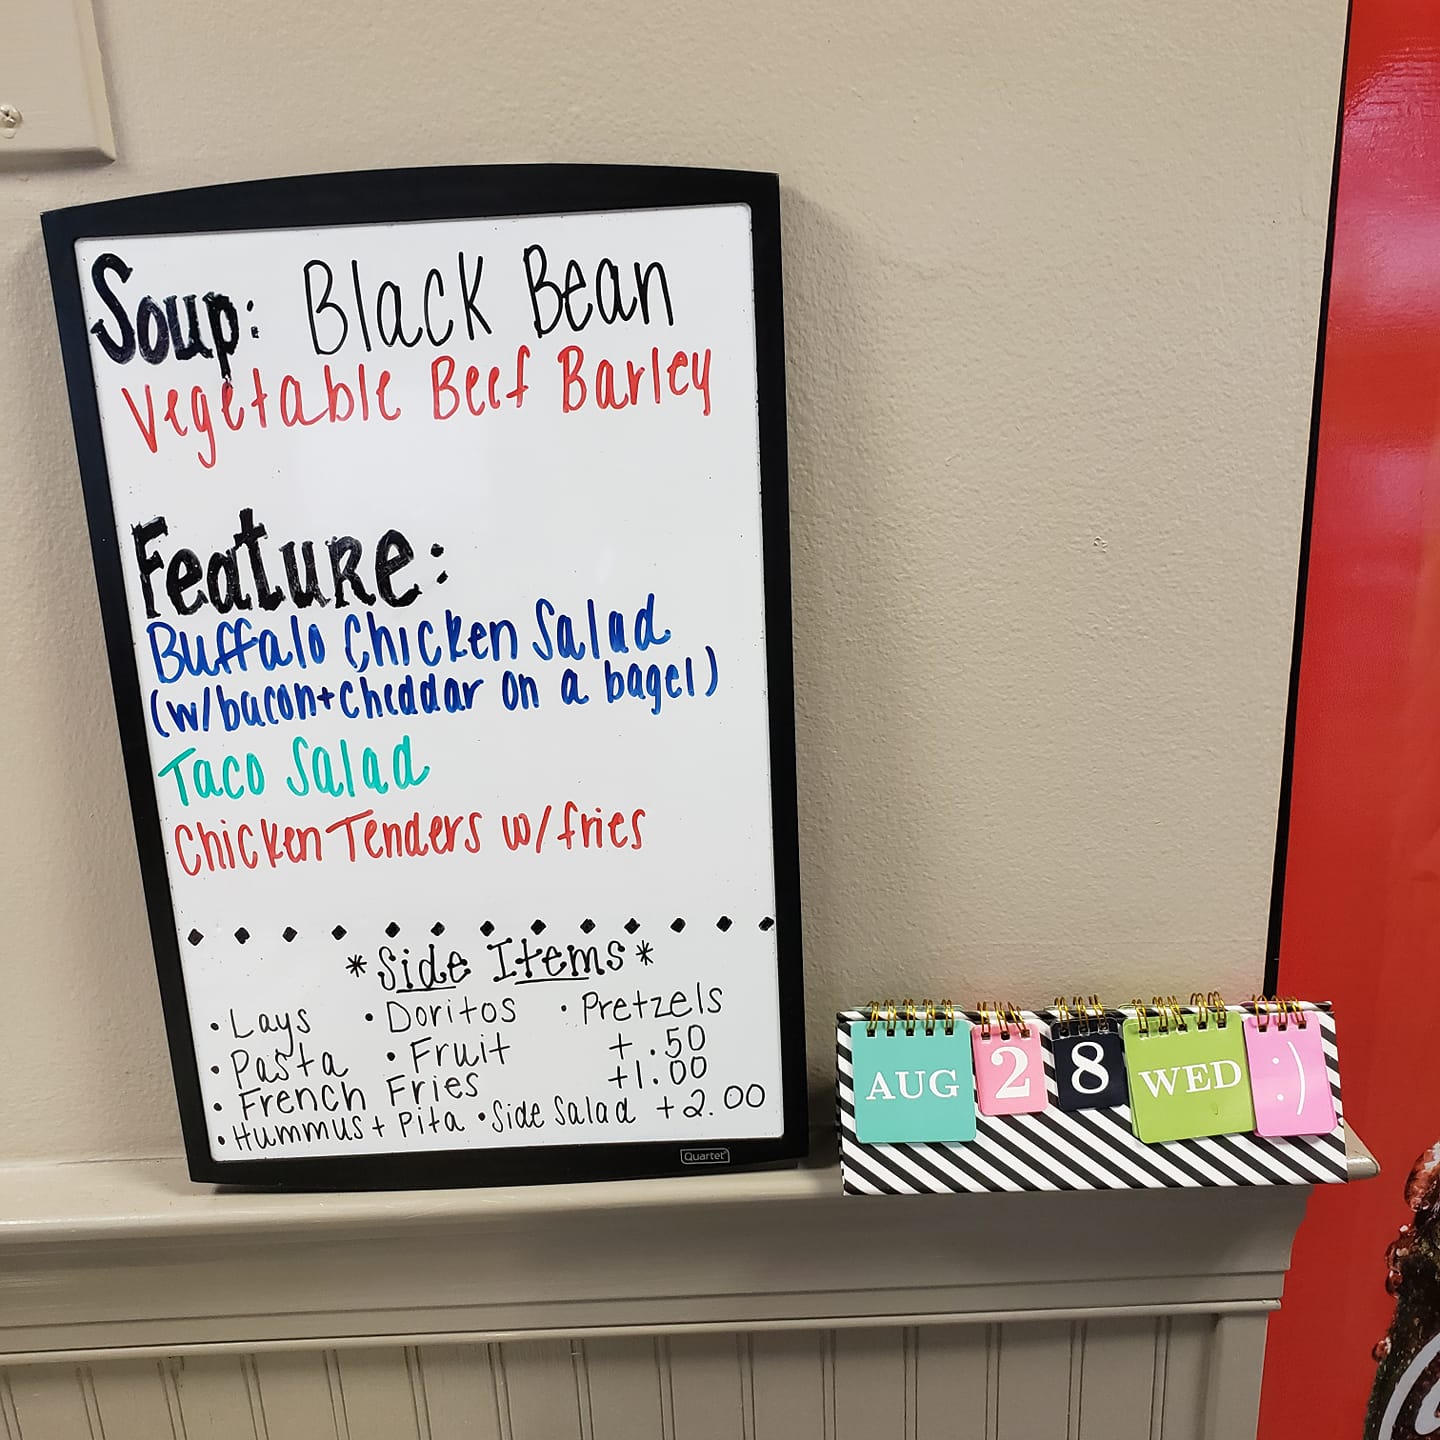 Soup: Black Bean
Vegetable Beef Barley
Feature:
Buffalo Chicken Salad
(w/bacon+cheddar on a bagel)
Taco Salad
Chicken Tenders w/fries
*Side Items*
• Lays • Doritos • Pretzels
• Pasta • Fruit + .50
• French Fries +1.00
• Hummus + Pita • Side Salad +2.00
Quartet
AUG 28 WED :)